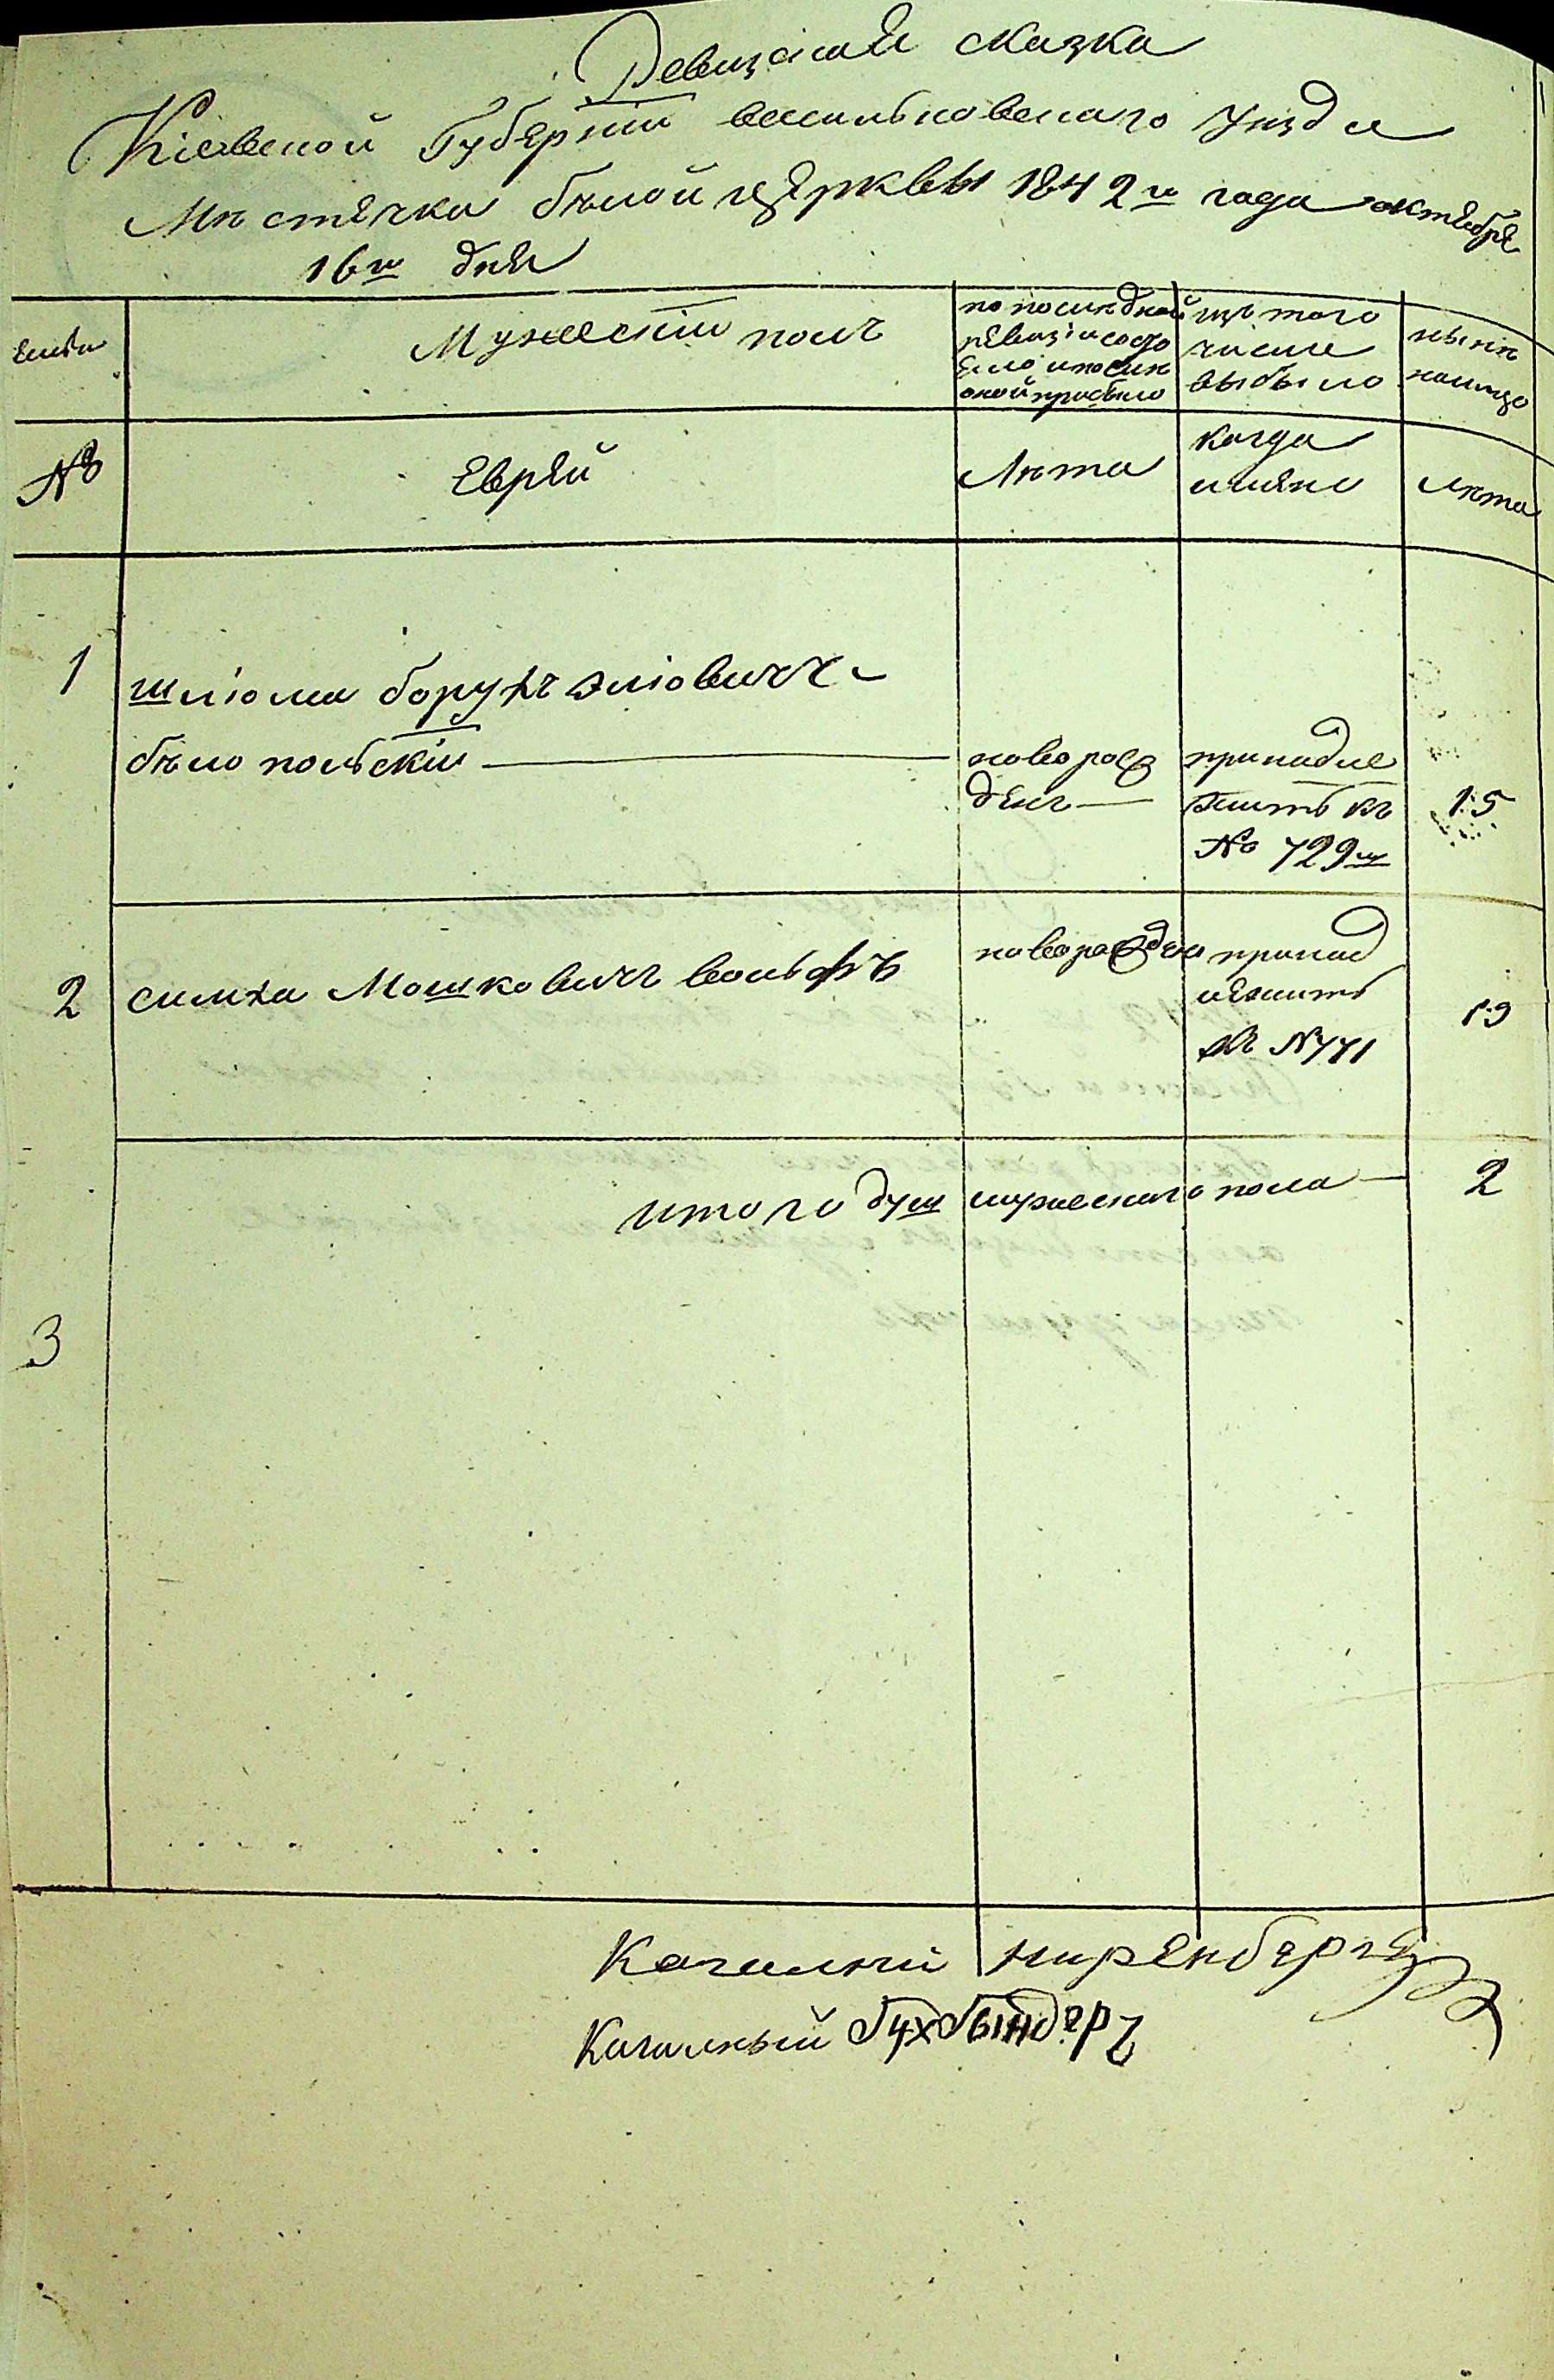 Ревизская сказка
Кіевской Губерніи васильковскаго уезда
Мѣстечка бѣлой церквы 1842го года октября
16го дня
семья
Мужескій полъ
по послѣдной
ревизіи состо
яло и послѣ
оной прибыло
изъ того
числа
выбыло
нынѣ
налицо
№
Еврѣи
Лѣта
когда
имено
лѣта
1
шліома борухъ эліовичъ
бѣлопольскій
новорож
денъ
принадле
житъ къ
№ 729му
15
2
симха Мошковичъ вольфъ
новорожденъ
принад
лежитъ
къ № 771
19
итого душ мужескаго пола
2
3
Кагалный Ниренбергъ
Кагалный Бухбындеръ